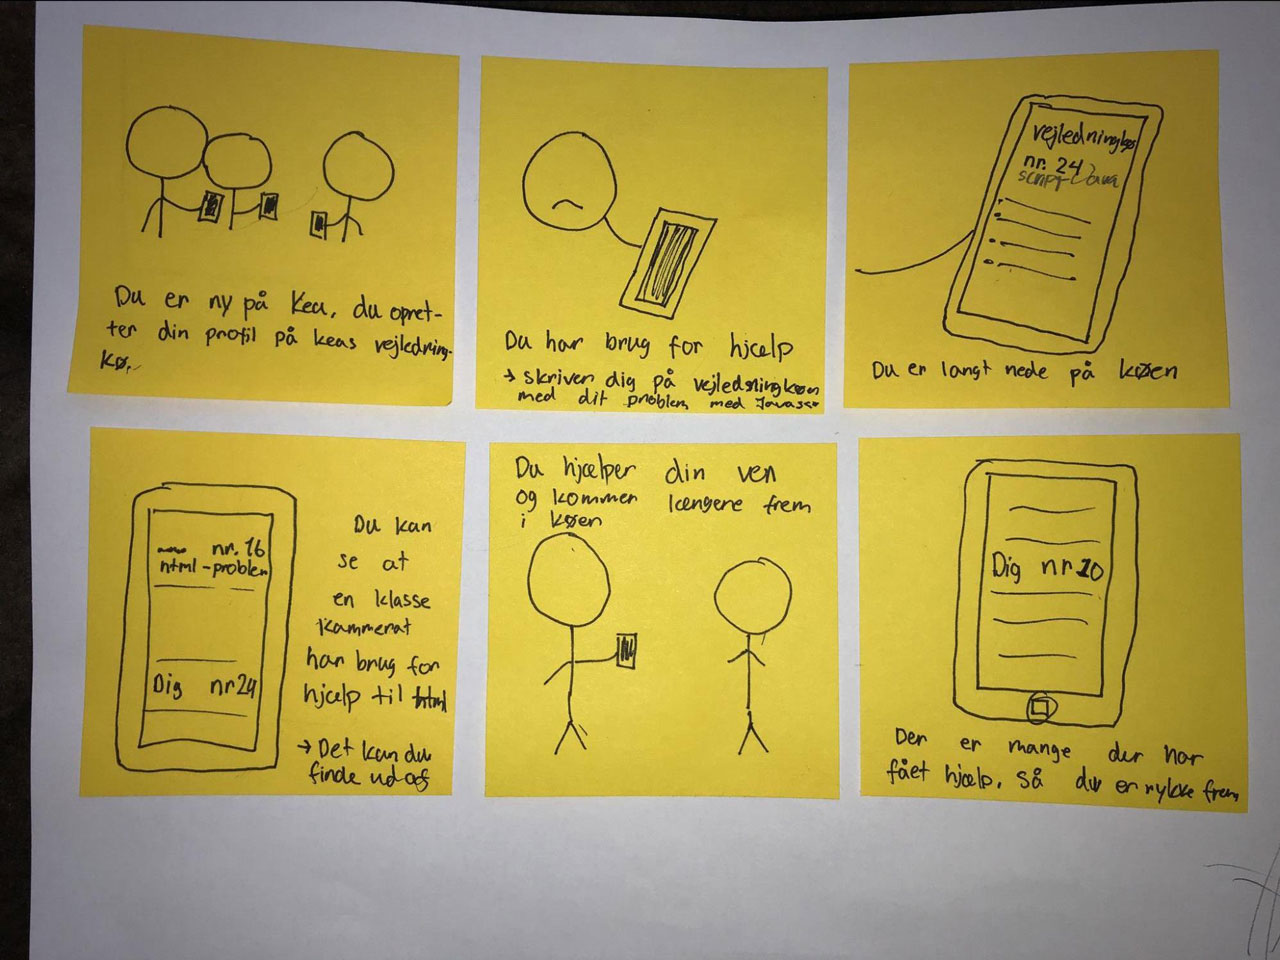 Du er ny på Kea, du opret-
ter din profil på keas vejlednings-
kø.
Du har brug for hjælp
→ skriver dig på vejledningkøen
med dit problem med Javasc
vejledningkø
nr. 24
script Java
Du er langt nede på køen
nr. 16
html-problem
Dig nr 24
Du kan
se at
en klasse
kammerat
har brug for
hjælp til html
→ Det kan du
finde ud af
Du hjælper din ven
og kommer længere frem
i køen
Dig nr 20
Der er mange der har
fået hjælp. Så du er rykke frem